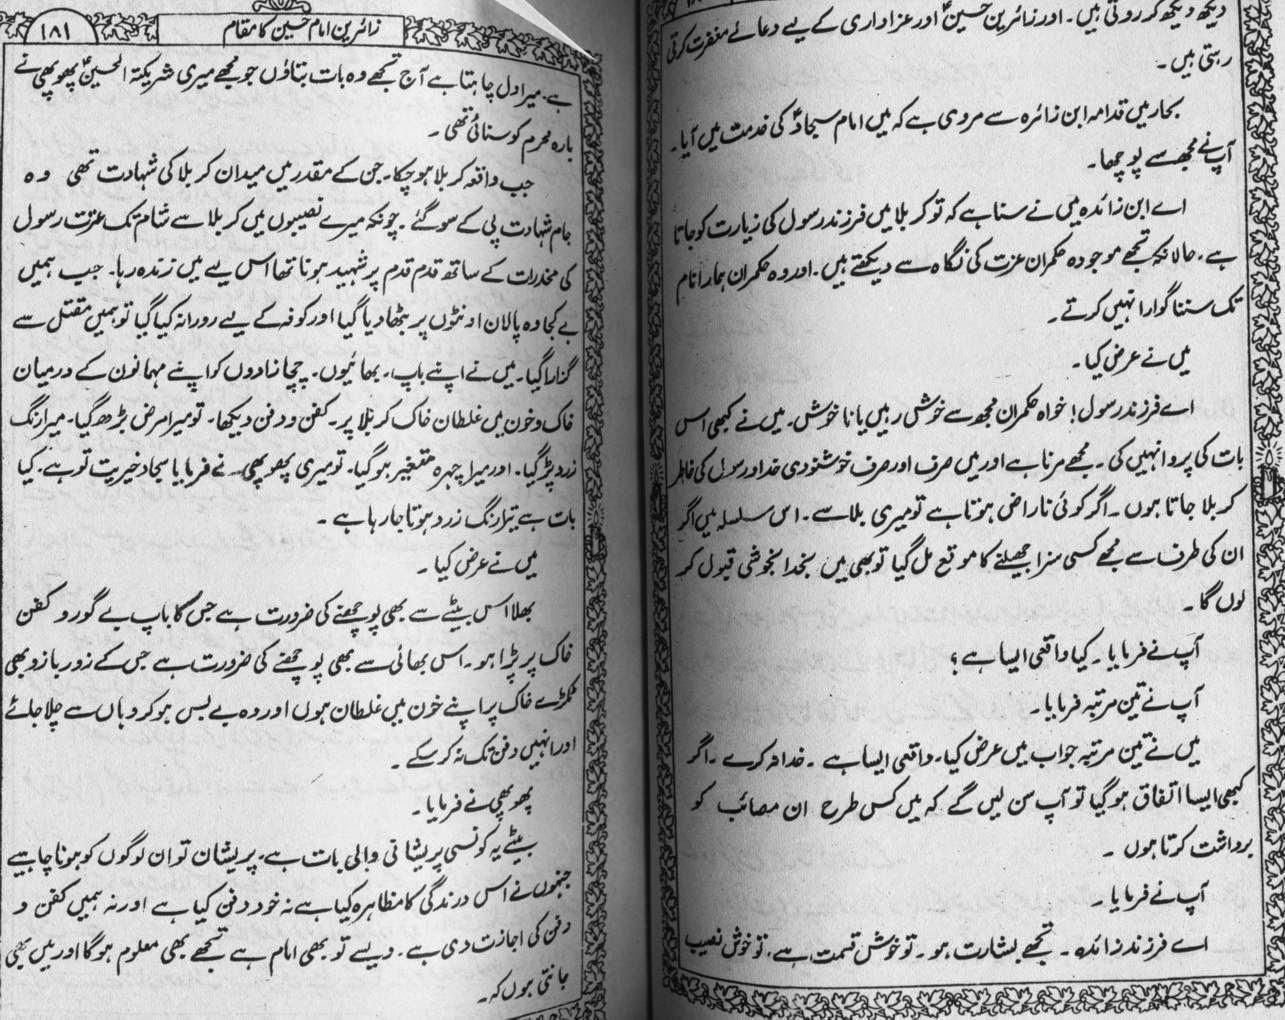 دیکھ دیکھ کر روتی ہیں۔ اور زائرین حسینؑ اور عزاداری کے لیے دعائے مغفرت کرتی
رہتی ہیں۔
بحار میں قدامہ ابن زائرہ سے مروی ہے کہ میں امام سجادؑ کی خدمت میں آیا۔
آپ نے مجھ سے پوچھا۔
اے ابن زائدہ میں نے سنا ہے کہ تو کربلا میں فرزند رسول کی زیارت کو جاتا
ہے۔ حالانکہ تجھے موجودہ حکمران عزت کی نگاہ سے دیکھتے ہیں۔ اور وہ حکمران ہمارا نام
تک سننا گوارا نہیں کرتے۔
میں نے عرض کیا۔
اے فرزند رسول! خواہ حکمران مجھ سے خوش رہیں یا ناخوش۔ میں نے کبھی اس
بات کی پرواہ نہیں کی۔ مجھے مرنا ہے اور میں صرف اور صرف خوشنودی خدا و رسول کی خاطر
کربلا جاتا ہوں۔ اگر کوئی ناراض ہوتا ہے تو میری بلا سے۔ اس سلسلہ میں اگر
ان کی طرف سے مجھے کسی سزا جھیلنے کا موقع مل گیا تو بھی میں بخدا بخوشی قبول کر
لوں گا۔
آپ نے فرمایا۔ کیا واقعی ایسا ہے؟
آپ نے تین مرتبہ فرمایا۔
میں نے تین مرتبہ جواب میں عرض کیا۔ واقعی ایسا ہے۔ خدا نہ کرے۔ اگر
کبھی ایسا اتفاق ہو گیا تو آپ سن لیں گے کہ میں کس طرح ان مصائب کو
برداشت کرتا ہوں۔
آپ نے فرمایا۔
اے فرزند زائدہ۔ تجھے بشارت ہو۔ تو خوش قسمت ہے، تو خوش نصیب
زائرین امام حسین کا مقام
۱۸۱
ہے۔ میرا دل چاہتا ہے آج تجھے وہ بات بتاؤں جو مجھے میری شریکۃ الحسینؑ پھوپھی نے
بارہ محرم کو سنائی تھی۔
جب واقعہ کربلا ہو چکا۔ جن کے مقدر میں میدان کربلا کی شہادت تھی وہ
جام شہادت پی کے سو گئے۔ چونکہ میرے نصیبوں میں کربلا سے شام تک عترت رسول
کی مخدرات کے ساتھ قدم قدم پر شہید ہونا تھا اس لیے میں زندہ رہا۔ جب ہمیں
بے کجاوہ پالان اونٹوں پر بٹھا دیا گیا اور کوفہ کے لیے روانہ کیا گیا تو ہمیں مقتل سے
گزارا گیا۔ میں نے اپنے باپ، بھائیوں۔ چچا زادوں کو اپنے مہمانوں کے درمیان
خاک و خون میں غلطان خاک کربلا پر۔ کفن و دفن دیکھا۔ تو میرا مرض بڑھ گیا۔ میرا رنگ
زرد پڑ گیا۔ اور میرا چہرہ متغیر ہو گیا۔ تو میری پھوپھی نے فرمایا سجاد خیریت تو ہے۔ کیا
بات ہے تیرا رنگ زرد ہوتا جا رہا ہے۔
میں نے عرض کیا۔
بھلا اس بیٹے سے بھی پوچھنے کی ضرورت ہے جس کا باپ بے گور و کفن
خاک پر پڑا ہو۔ اس بھائی سے بھی پوچھنے کی ضرورت ہے جس کے زور بازو بھی
ٹکڑے خاک پر اپنے خون میں غلطان ہوں اور وہ بے بس ہو کر وہاں سے چلا جائے
اور انہیں دفن تک نہ کر سکے۔
پھوپھی نے فرمایا۔
بیٹے یہ کونسی پریشانی والی بات ہے۔ پریشان تو ان لوگوں کو ہونا چاہیے
جنہوں نے اس درندگی کا مظاہرہ کیا ہے نہ خود دفن کیا ہے اور نہ ہمیں کفن و
دفن کی اجازت دی ہے۔ ویسے تو بھی امام ہے تجھے بھی معلوم ہوگا اور میں بھی
جانتی ہوں کہ۔